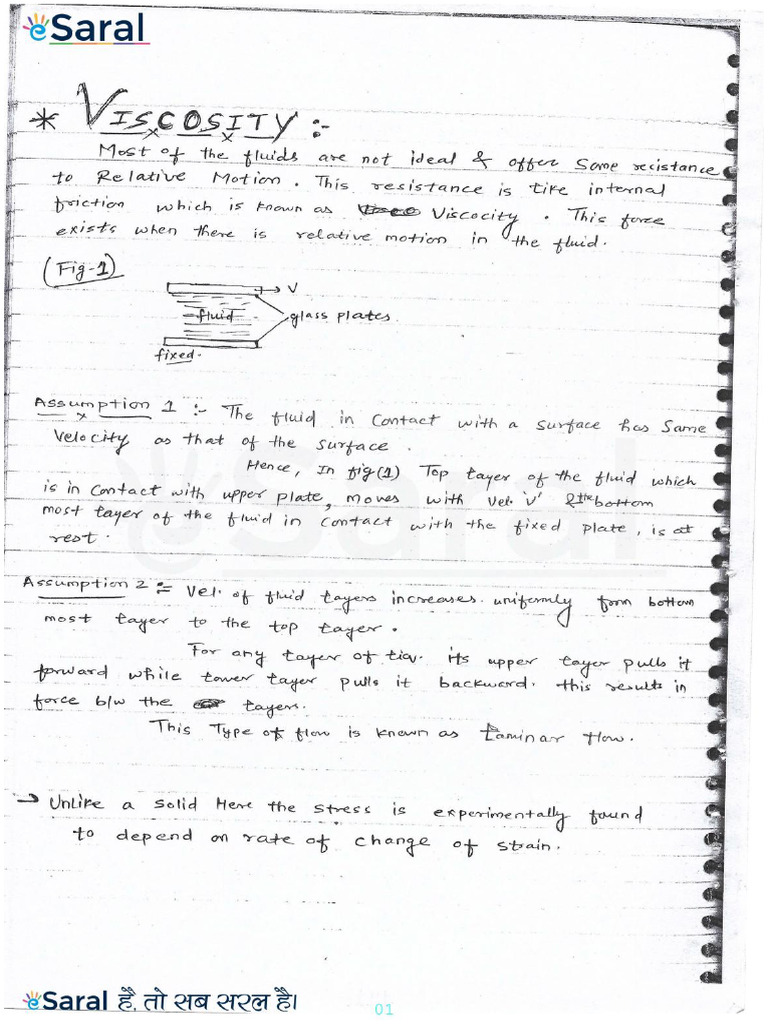 eSaral
* VISCOSITY :-
Most of the fluids are not ideal & offer some recistance
to Relative Motion. This resistance is like internal
friction which is known as Viscocity. This force
exists when there is relative motion in the fluid.
(Fig-1)
V
fluid
glass plates.
fixed.
Assumption 1 :- The fluid in Contact with a surface has same
velocity as that of the surface.
Hence, In fig(1) Top layer of the fluid which
is in contact with upper plate, moves with vel. 'v' & the bottom
most layer of the fluid in contact with the fixed plate, is at
rest.
Assumption 2 :- Vel. of fluid layers increases uniformly from bottom
most layer to the top layer.
For any layer of liq. its upper layer pulls it
forward while lower layer pulls it backward. this results in
force b/w the layers.
This Type of flow is known as Laminar flow.
→ Unlike a solid Here the stress is experimentally found
to depend on rate of change of strain.
eSaral
eSaral है, तो सब सरल है।
01